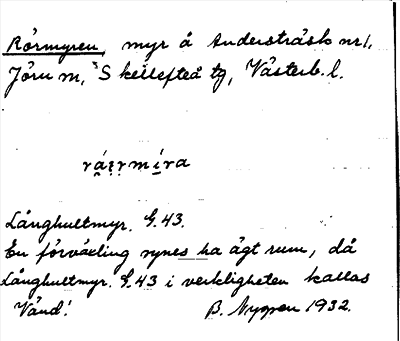 Rörmyren, myr å Andersträsk nr 1,
Jörn sn, Skellefteå tg, Västerb. l.
Långhultmyr. G.43.
En förväxling synes ha ägt rum, då
Långhultmyr. G.43 i verkligheten kallas
Vänd! B. Nygren 1932.